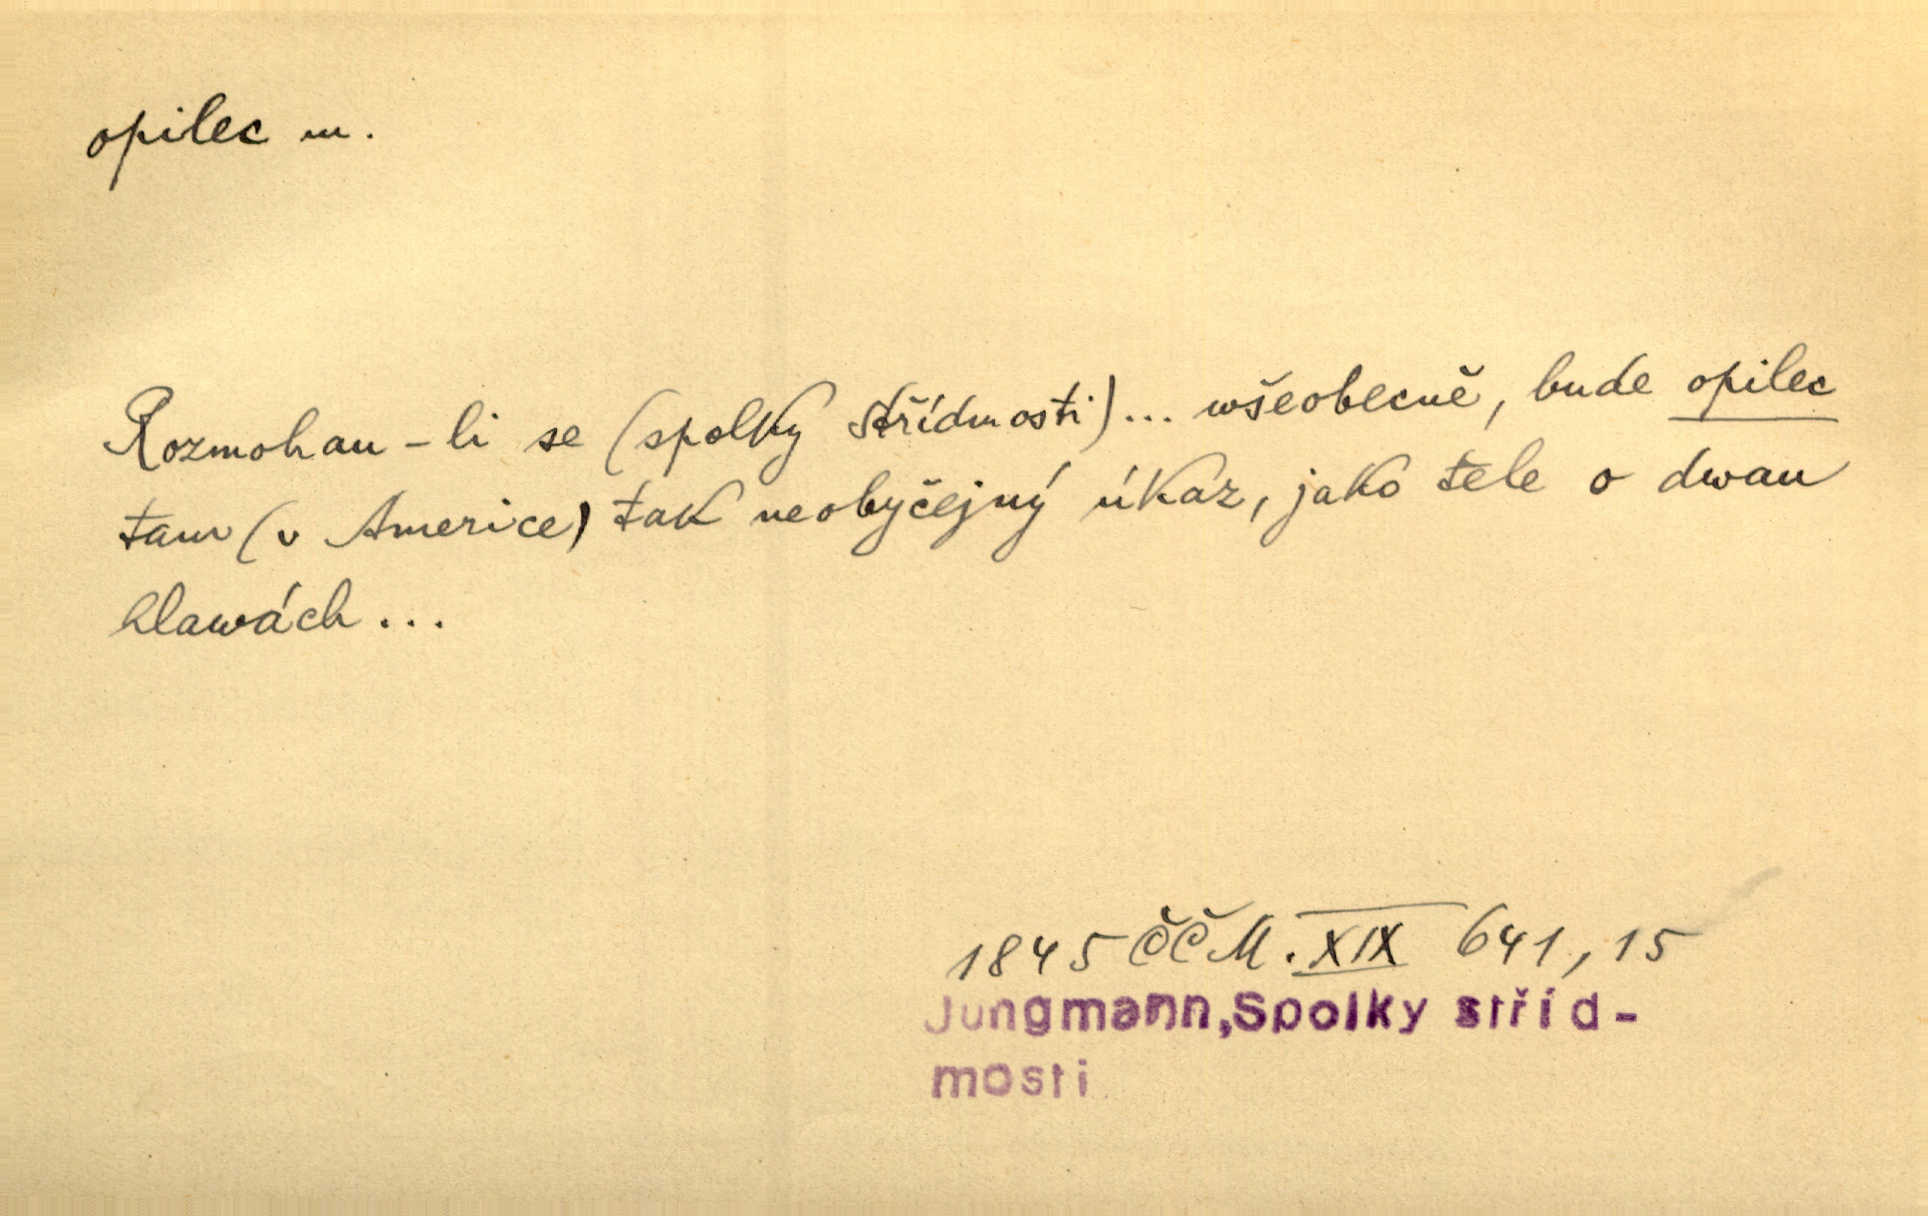 opilec m.
Rozmohau-li se (spolky střídmosti)... wšeobecně, bude opilec
tam (v Americe) tak neobyčejný úkaz, jako tele o dwau
hlawách...
1845 ČČM. XIX 641, 15
Jungmann, Spolky stříd-
mosti